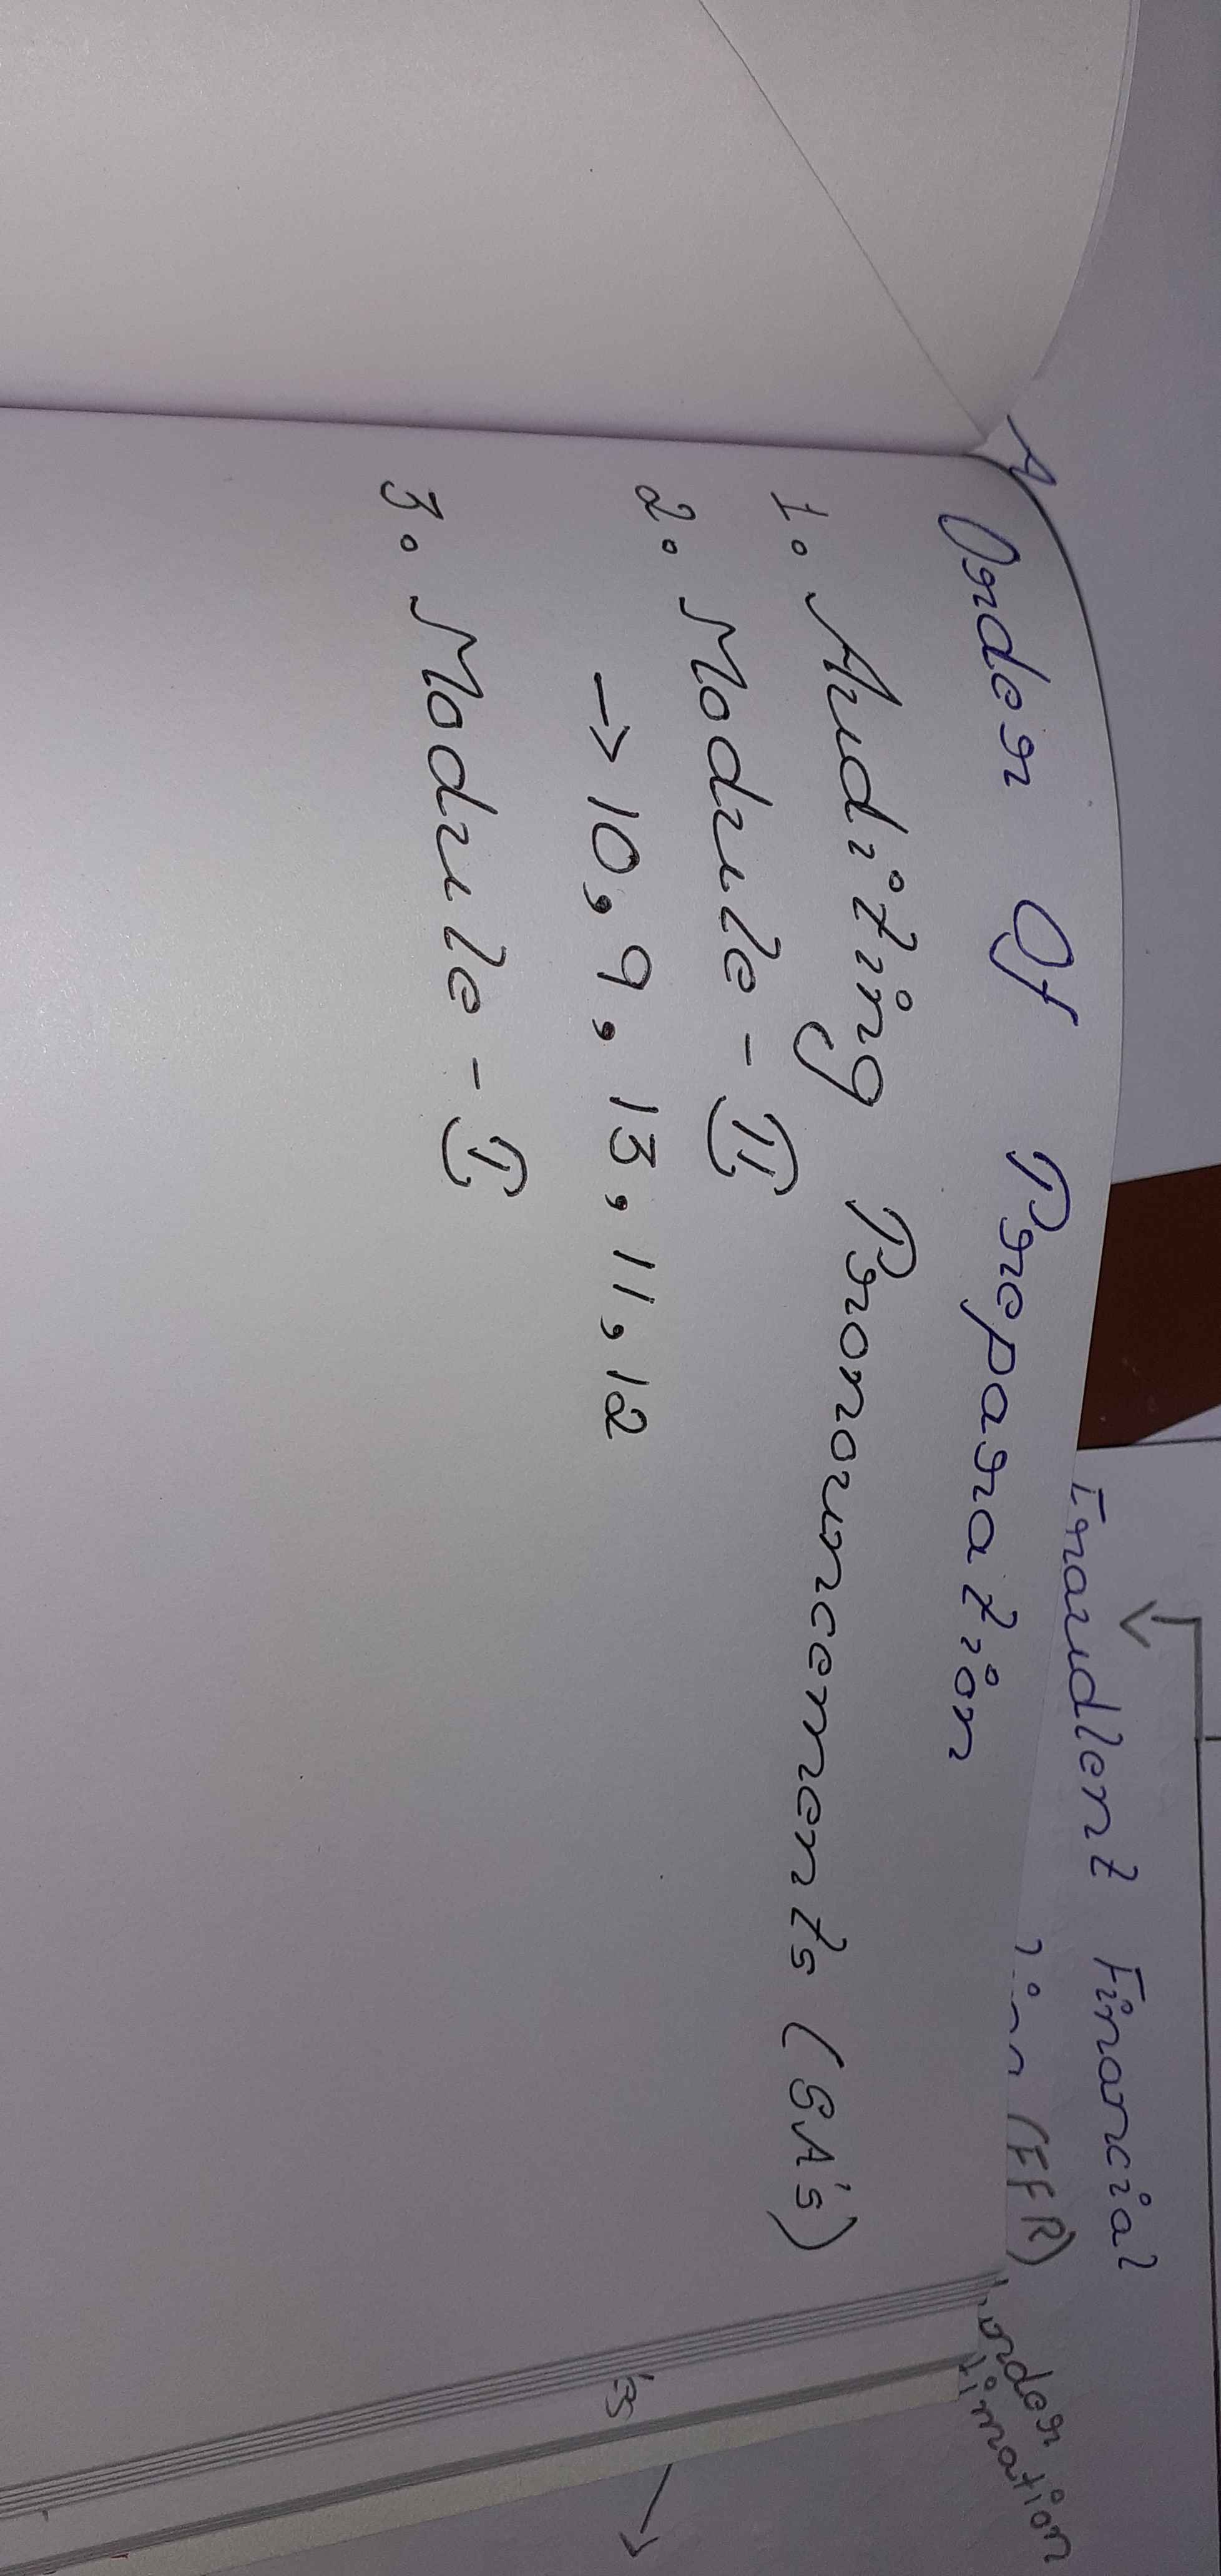 Fraudlent Financial
(FFR)
Order Of Preparation
1. Auditing Pronouncements (SA's)
2. Module - II
→ 10, 9, 13, 11, 12
3. Module - I